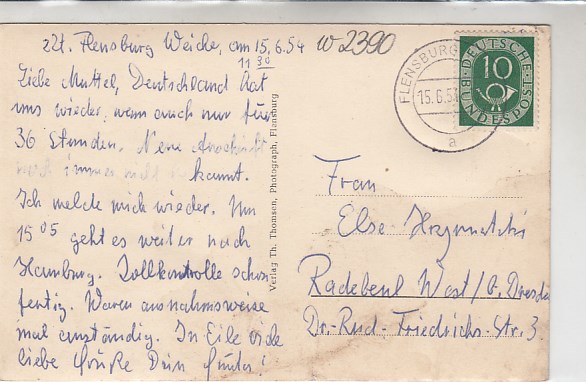 zZt. Flensburg Weiche, am 15.6.54
11 30
Liebe Muttel, Deutschland hat
uns wieder, wenn auch nur für
36 Stunden. Neue Anschrift
noch immer nicht
bekannt.
Ich melde mich wieder. Um
15 05 geht es weiter nach
Hamburg. Zollkontrolle schon
fertig. Waren ausnahmsweise
mal anständig. In Eile viele
liebe Grüße Dein Günter!
w2390
Verlag Th. Thomsen, Photograph, Flensburg
FLENSBURG
15.6.5
a
DEUTSCHE BUNDESPOST
10
Frau
Else
Radebeul West/b. Dresden
Dr.-Rud-Friedrichs-Str. 3.